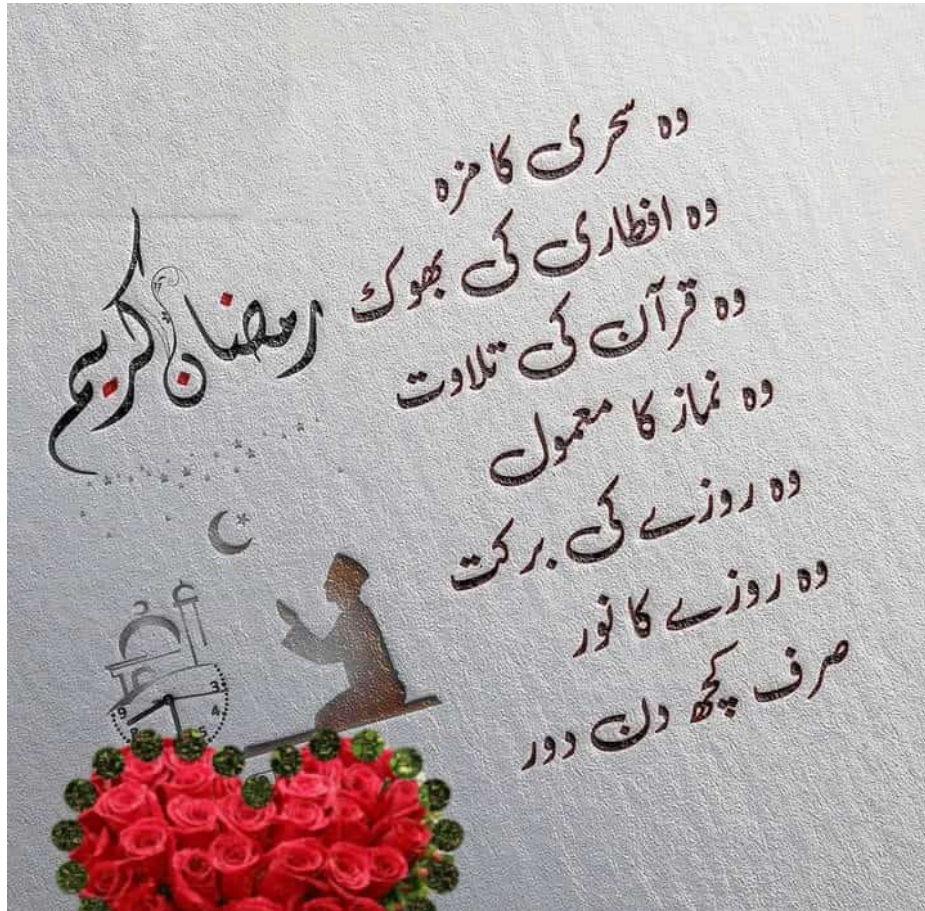 وہ سحری کا مزہ
وہ افطاری کی بھوک
وہ قرآن کی تلاوت
وہ نماز کا معمول
وہ روزے کی برکت
وہ روزے کا نور
صرف کچھ دن دور
رمضان كريم
3
4
5
8
9